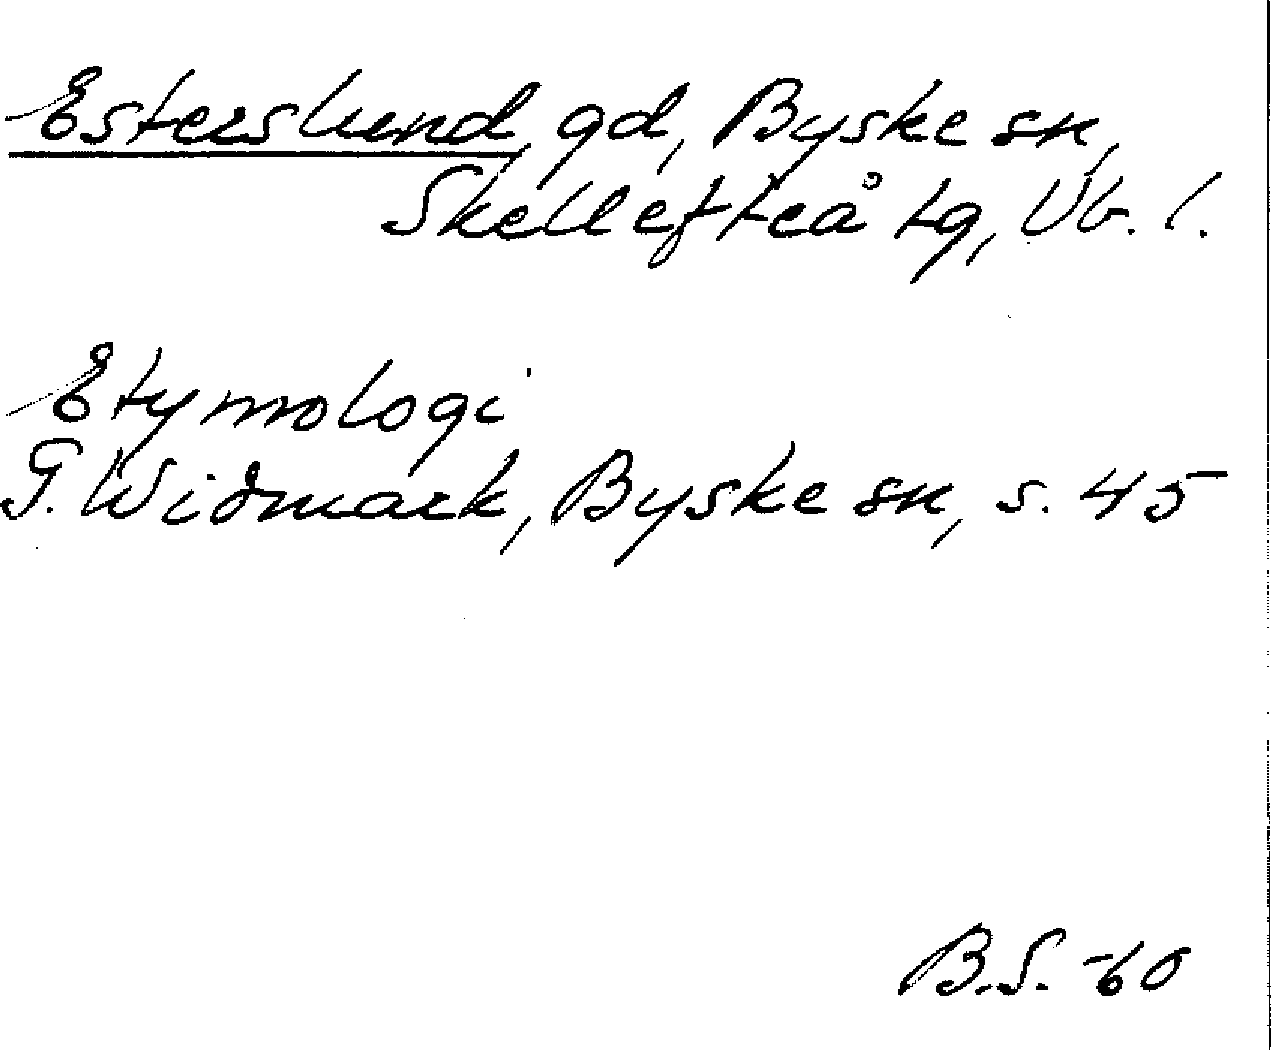 Esterslund, gd, Byske sn,
Skellefteå tg, Vb. l.
Etymologi
G. Widmark, Byske sn, s. 45
B.S. -60